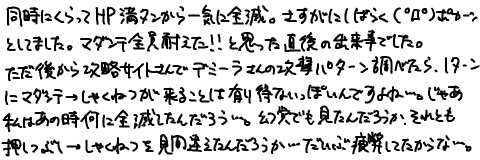 同時にくらってHP満タンから一気に全滅。さすがにしばらく(゜Д゜)ポカーン
としてました。マダンテ全員耐えた!!と思った直後の出来事でした。
ただ後から攻略サイトさんでデミーラさんの攻撃パターン調べたら、1ターン
にマダンテ→しゃくねつが来ることは有り得ないっぽいんですよね…。じゃあ
私はあの時何に全滅してたんだろう…。幻覚でも見たんだろうか、それとも
押しつぶし→しゃくねつを見間違えたんだろうか…だいぶ疲弊してたからな…。